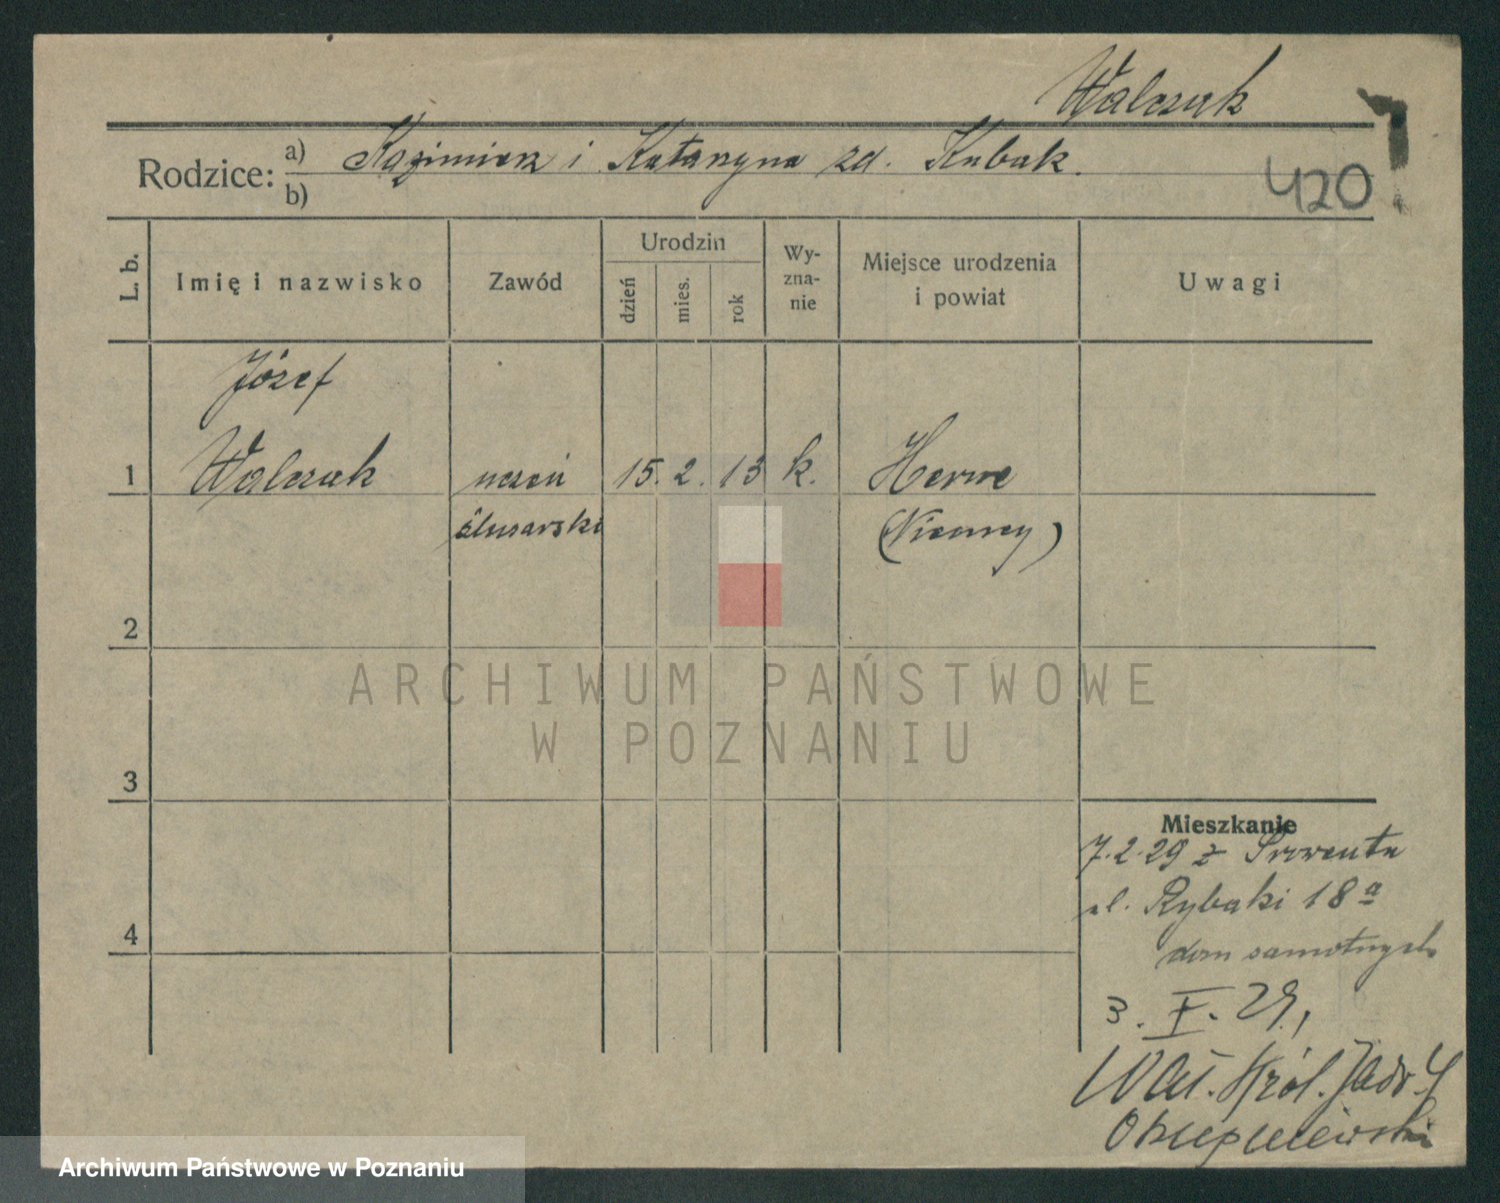 Walczak
Rodzice: a) Kazimierz i Katarzyna zd. Kubak.
b)
420
L. b.
Imię i nazwisko
Zawód
Urodzin
dzień
mies.
rok
Wy-
zna-
nie
Miejsce urodzenia
i powiat
Uwagi
Józef
1 Walczak uczeń 15. 2. 13 k. Herne
ślusarski (Niemcy)
2
3
4
Mieszkanie
7.2.29 z
ul. Rybaki 18a
dom samotnych
3. V. 29,
Wał. Król. Jadw. 4
ARCHIWUM PAŃSTWOWE
W POZNANIU
Archiwum Państwowe w Poznaniu